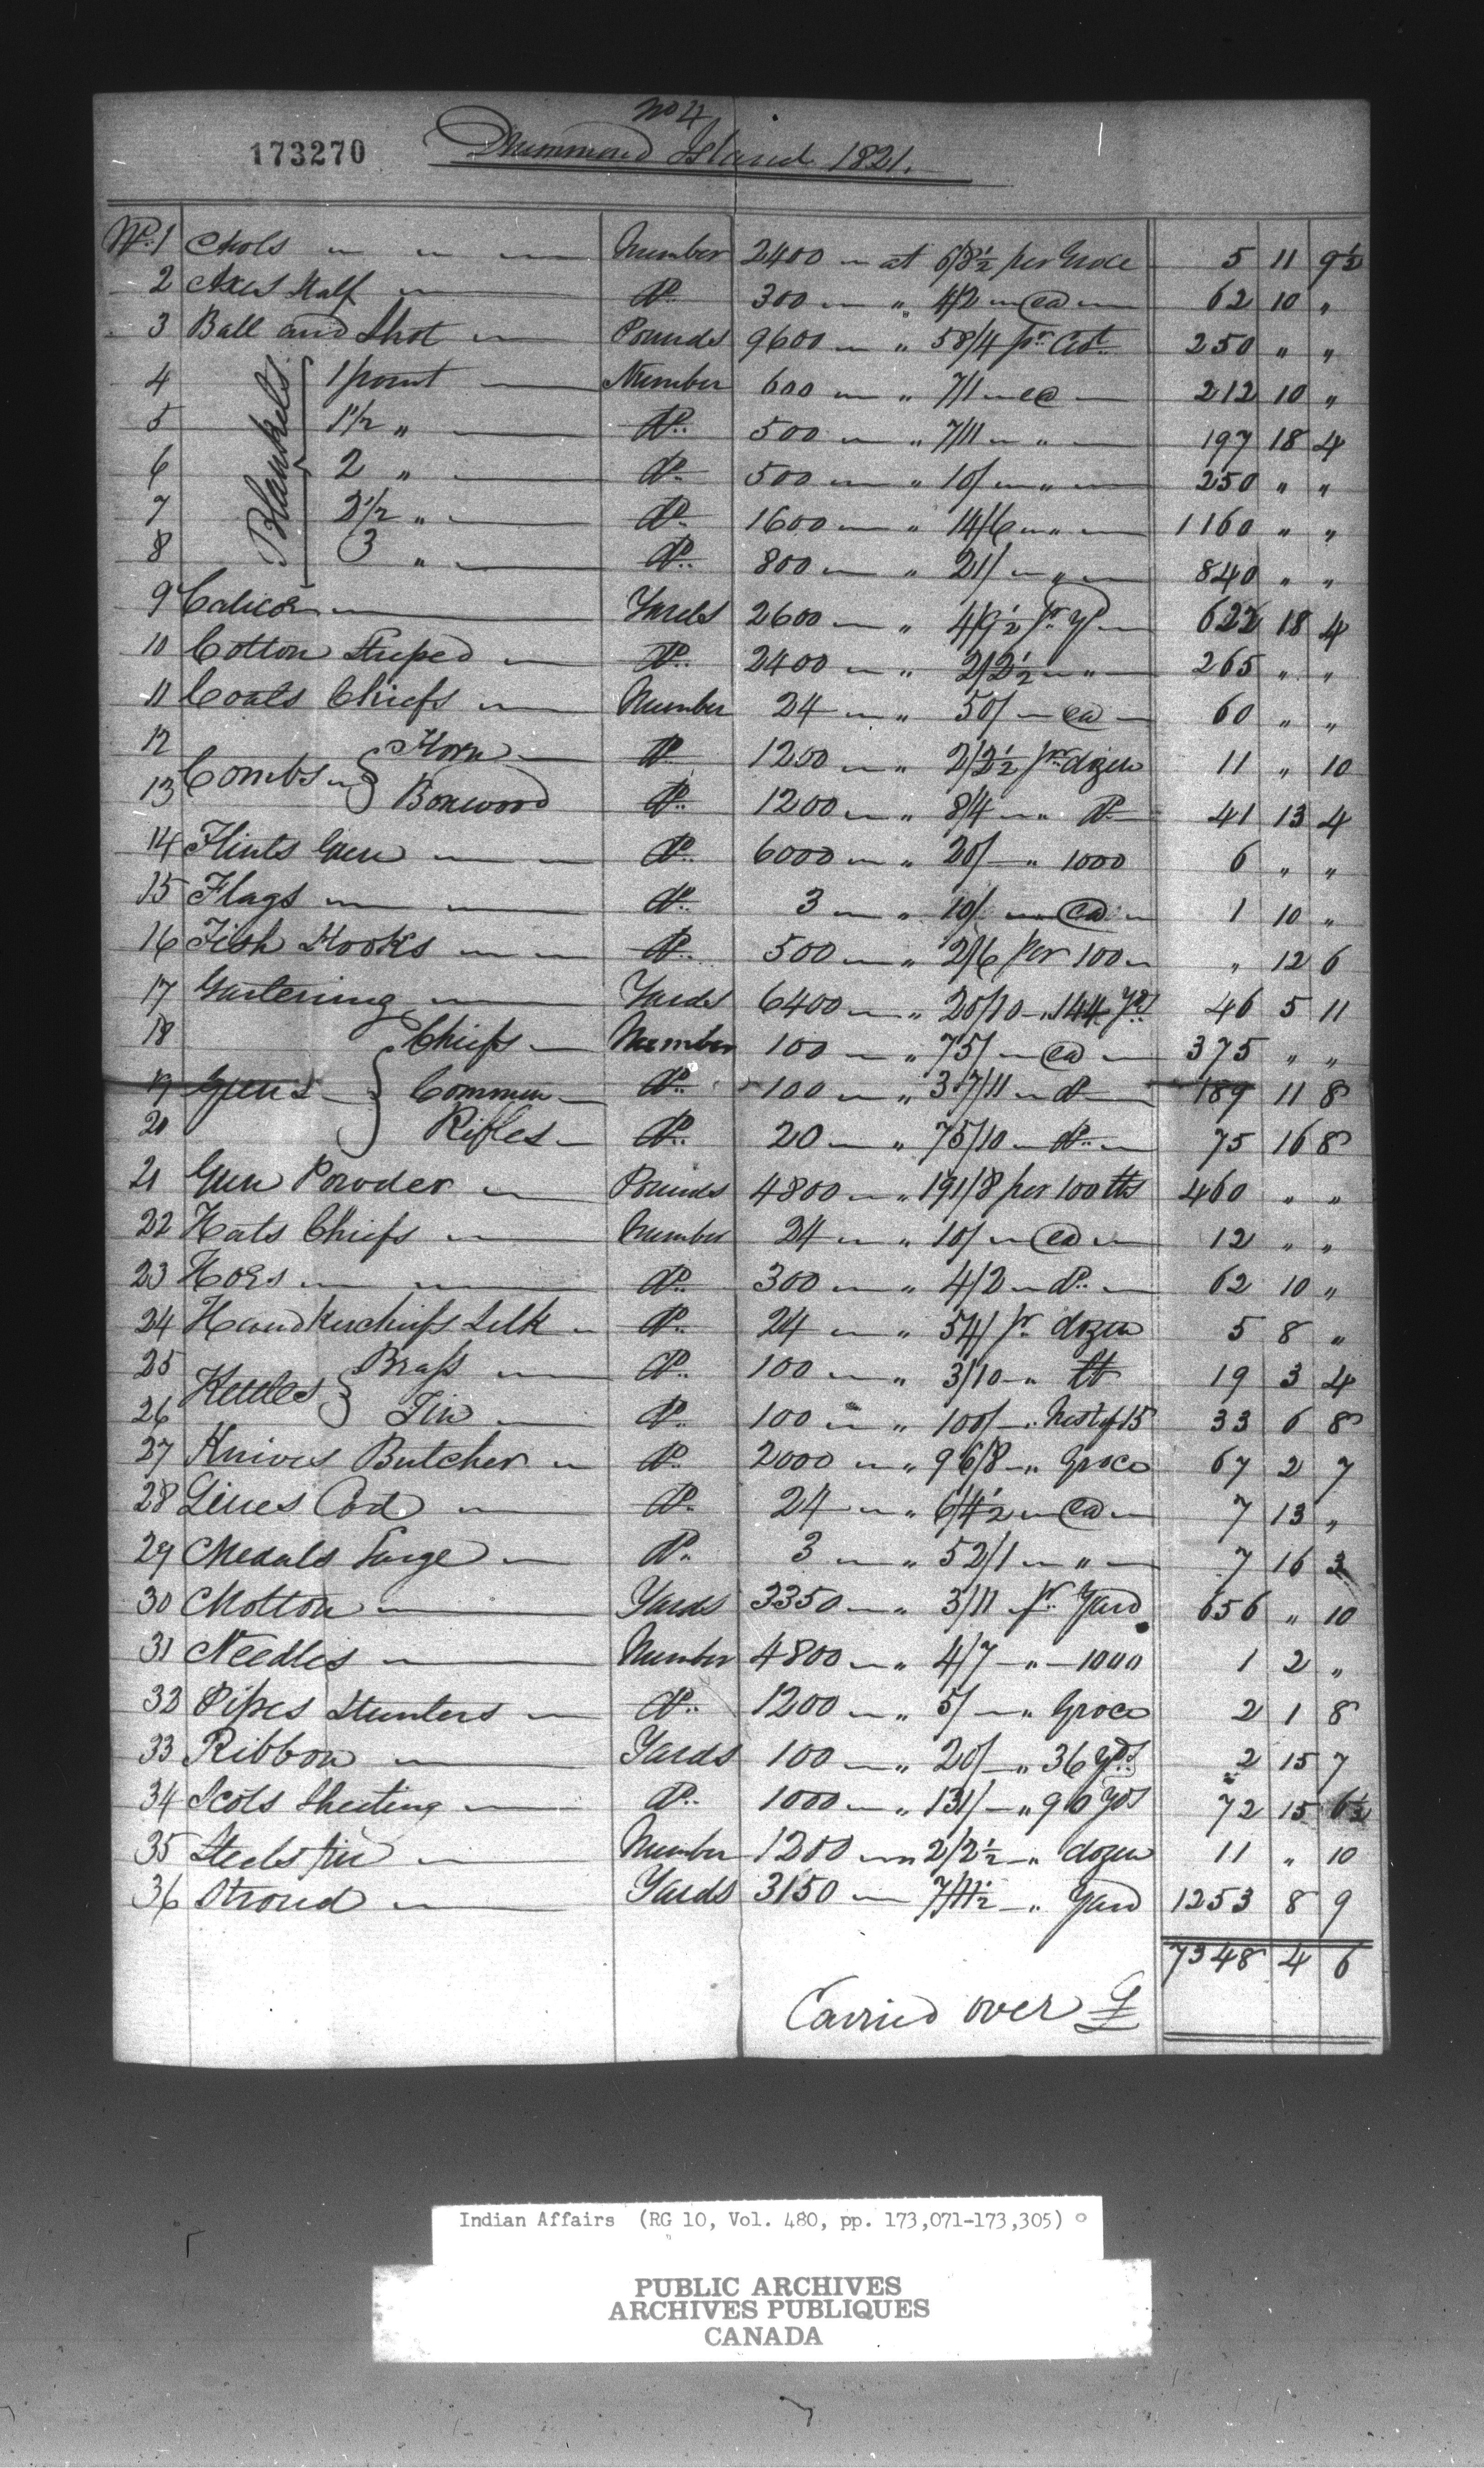 No 4
173270 Drummond Island 1821.
No. 1 Awls Number 2400 at 6/8½ per Groce 5 11 9½
2 Axes Half Do. 300 " 4/2 ea 62 10 "
3 Ball and Shot Pounds 9600 " 58/4 pr. Cwt. 250 " "
Blankets
4 1 point Number 600 " 7/1 ea 212 10 "
5 1½ " Do. 500 " 7/11 " 197 18 4
6 2 " Do. 500 " 10/ " 250 " "
7 2½ " Do. 1600 " 14/6 " 1160 " "
8 3 " Do. 800 " 21/ " 840 " "
9 Calicoe Yards 2600 " 4/9½ pr. Yd 622 18 4
10 Cotton Striped Do. 2400 " 2/2½ " 265 " "
11 Coats Chiefs Number 24 " 50/ ea 60 " "
12 Combs Horn Do. 1200 " 2/2½ pr dozen 11 " 10
13 Boxwood Do. 1200 " 8/4 " Do. 41 13 4
14 Flints Gun Do. 6000 " 20/ " 1000 6 " "
15 Flags Do. 3 " 10/ ea 1 10 "
16 Fish Hooks Do. 500 " 2/6 per 100 " 12 6
17 Gartering Yards 6400 " 20/10 " 144 Yds 46 5 11
18 Chiefs Number 100 " 75/ ea 375 " "
19 Guns Common Do. 100 " 37/11 Do 189 11 8
20 Rifles Do. 20 " 75/10 Do. 75 16 8
21 Gun Powder Pounds 4800 " 191/8 per 100 lbs 460 " "
22 Hats Chiefs Number 24 " 10/ ea 12 " "
23 Hoes Do. 300 " 4/2 Do. 62 10 "
24 Handkerchiefs Silk Do. 24 " 54/ pr. dozen 5 8 "
25 Kettles Brass Do. 100 " 3/10 " lb 19 3 4
26 Tin Do. 100 " 100/ " Nest of 15 33 6 8
27 Knives Butcher Do. 2000 " 96/8 " Groce 67 2 7
28 Lines Cod Do. 24 " 6/4½ ea 7 13 "
29 Medals Large Do. 3 " 52/1 " 7 16 3
30 Molton Yards 3350 " 3/11 pr. Yard 656 " 10
31 Needles Number 4800 " 4/7 " 1000 1 2 "
32 Pipes Hunters Do. 1200 " 5/ " Groce 2 1 8
33 Ribbon Yards 100 " 20/ " 36 Yds. 2 15 7
34 Scots Sheeting Do. 1000 " 131/ " 90 Yds 72 15 6½
35 Steels fire Number 1200 2/2½ " dozen 11 " 10
36 Stroud Yards 3150 7/11½ " Yard 1253 8 9
7348 4 6
Carried over £
Indian Affairs (RG 10, Vol. 480, pp. 173,071-173,305)
PUBLIC ARCHIVES
ARCHIVES PUBLIQUES
CANADA